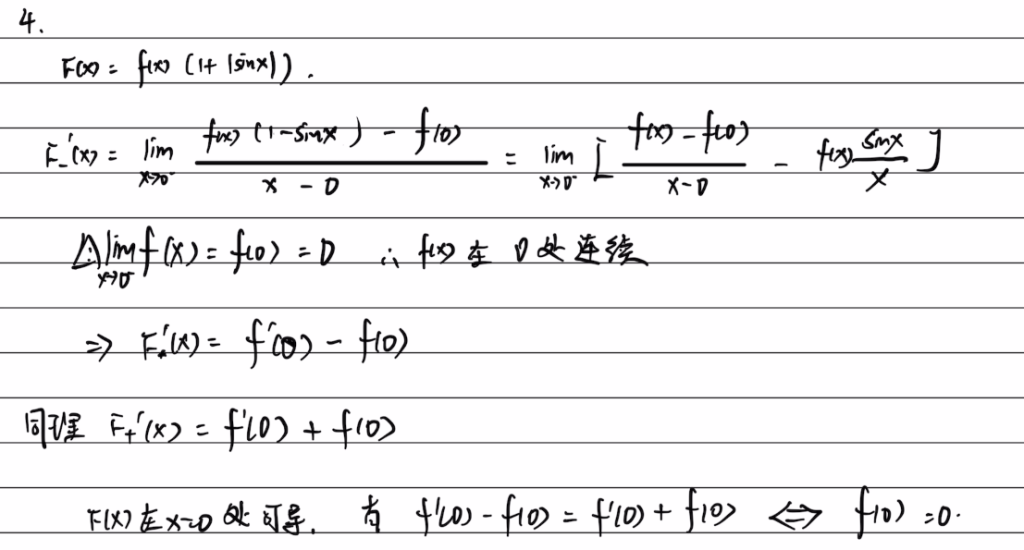 4.
F(x) = f(x) (1+ |sinx|).
F₋'(x) = lim_{x→0⁻} \frac{f(x)(1-sinx) - f(0)}{x - 0} = lim_{x→0⁻} [ \frac{f(x) - f(0)}{x-0} - f(x) \frac{sinx}{x} ]
lim_{x→0⁻} f(x) = f(0) = 0 ∴ f(x) 在 0 处连续
⇒ F₋'(x) = f'(0) - f(0)
同理 F₊'(x) = f'(0) + f(0)
F(x) 在 x=0 处可导. 有 f'(0) - f(0) = f'(0) + f(0) ⟺ f(0) = 0.